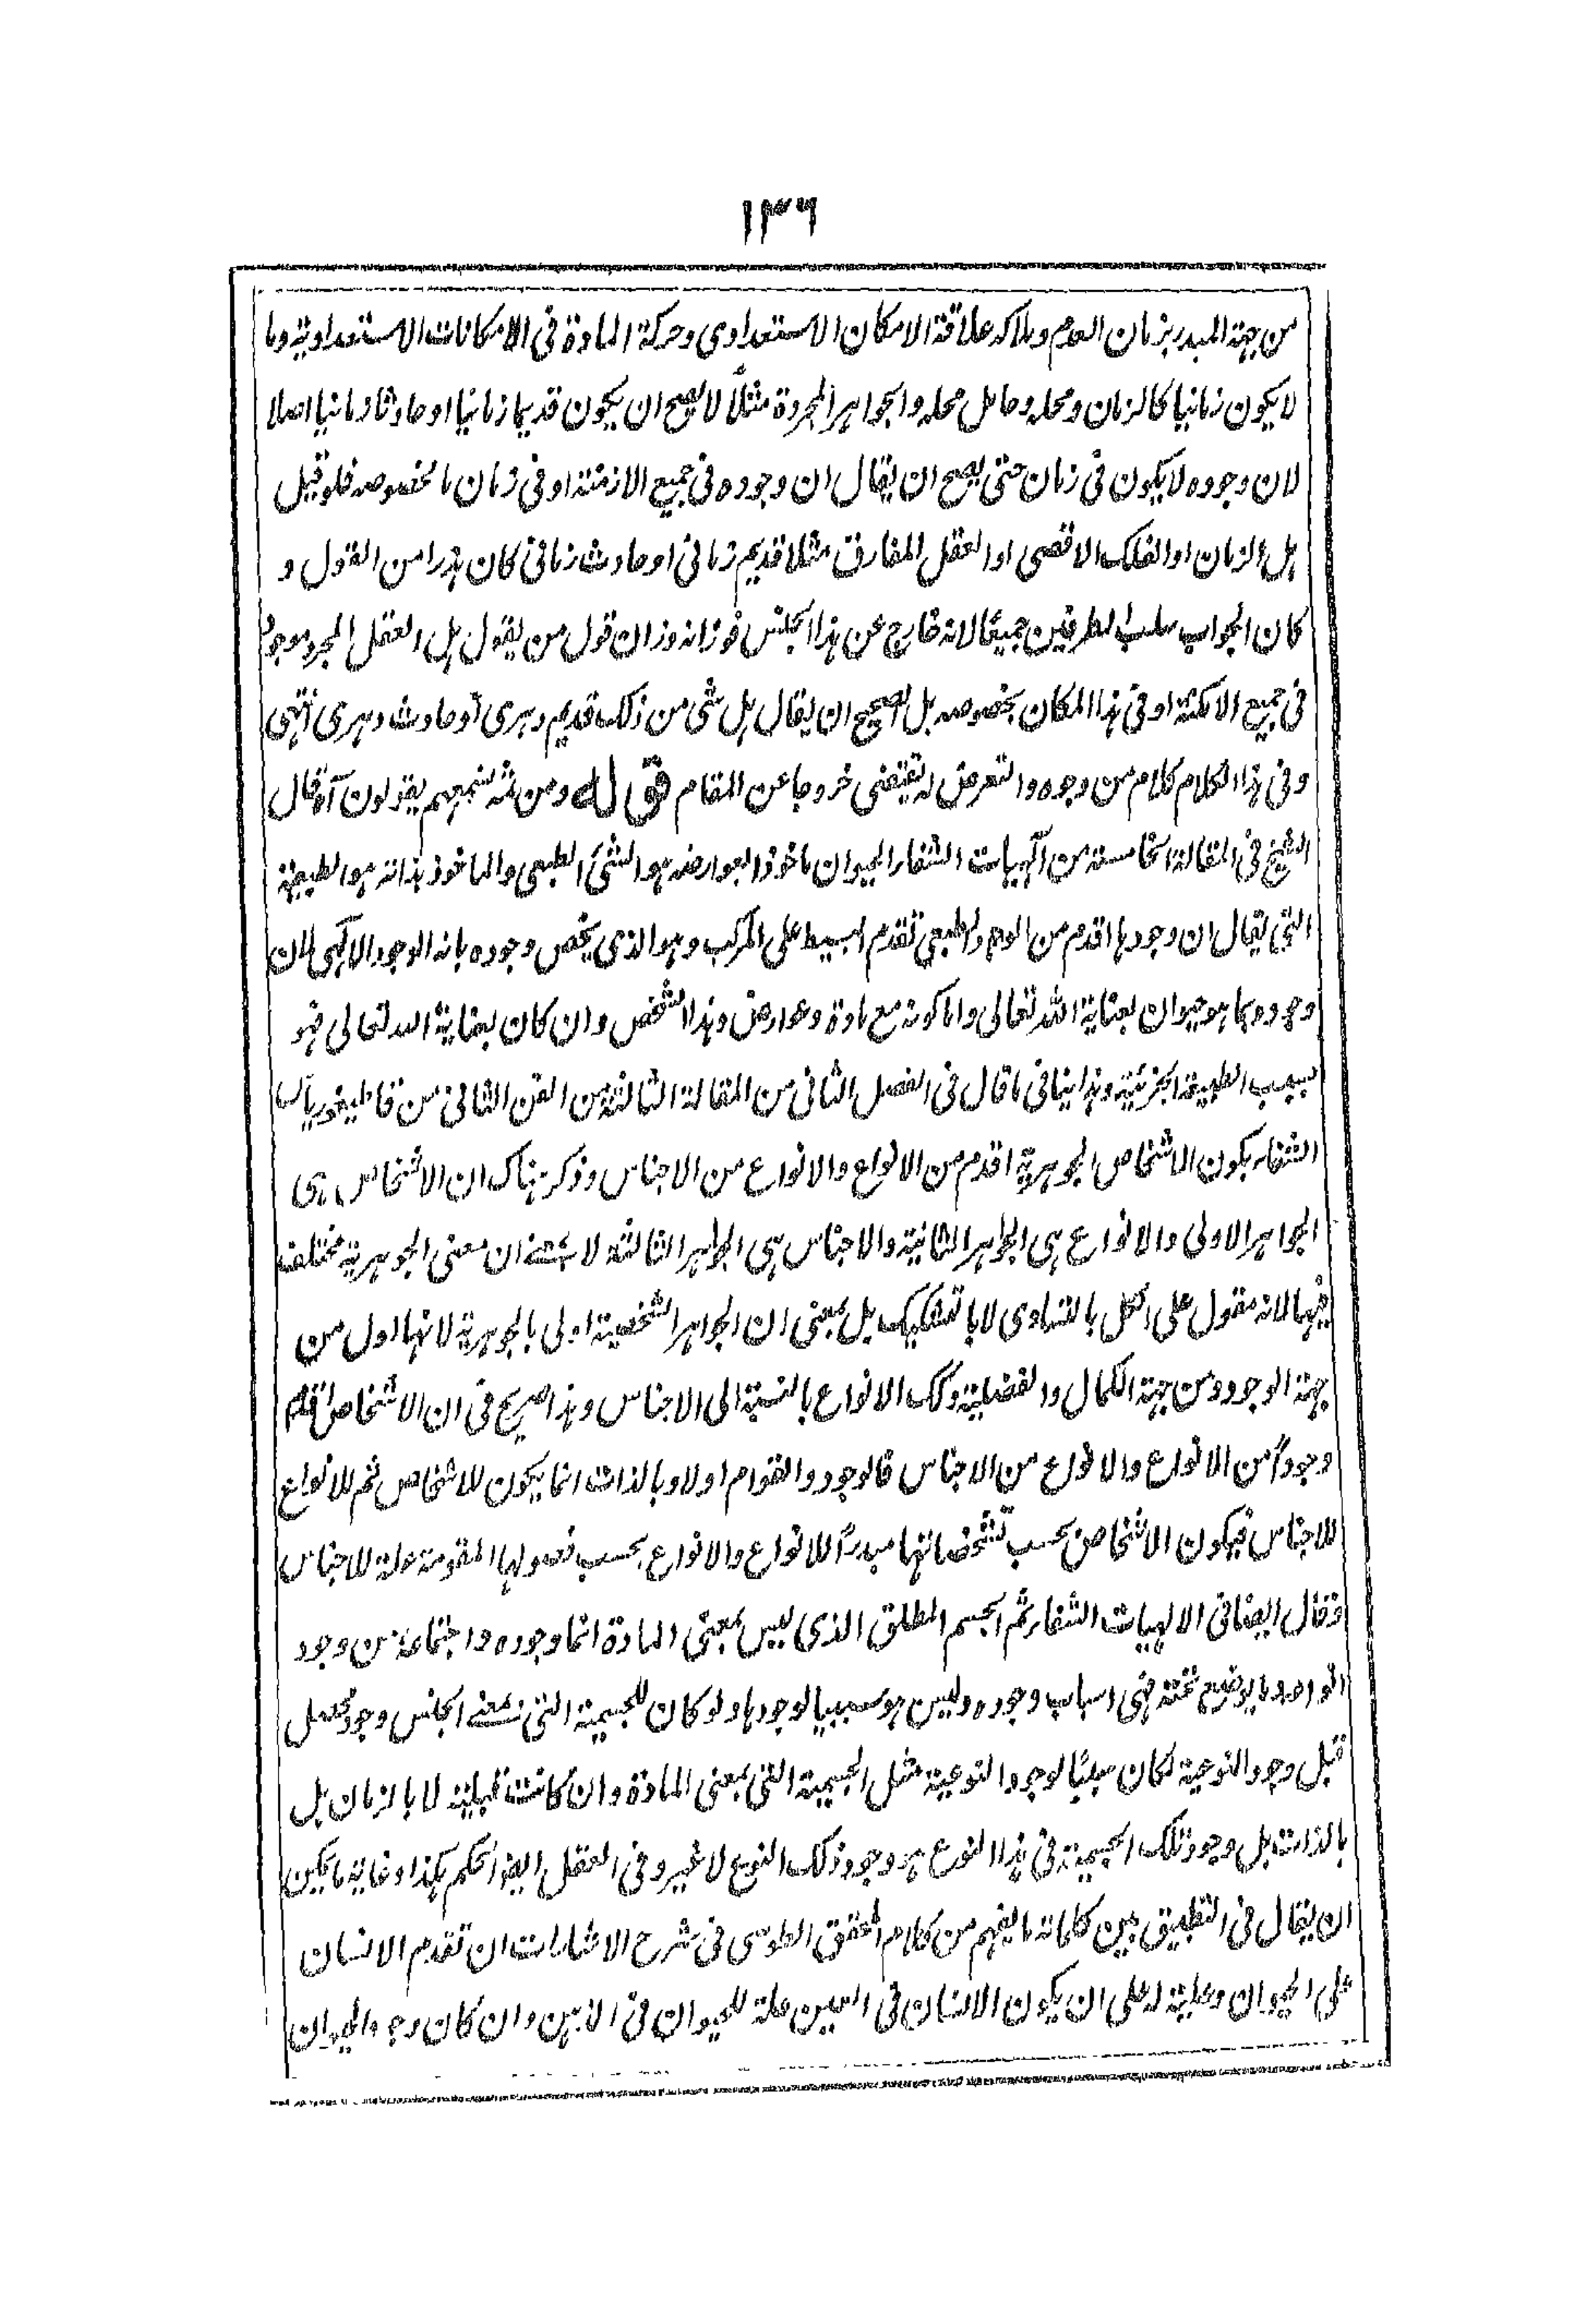 ١٣٦
من جهة المبدء بزمان العدم وملاكه علاقة الامكان الاستعدادى وحركة المادة فى الامكانات الاستعدادية وما
لا يكون زمانيا كالزمان ومحله وحامل محله والجواهر المجردة مثلاً لا يصح ان يكون قديما زمانيا او حادثا زمانيا اصلا
لان وجوده لا يكون فى زمان حتى يصح ان يقال ان وجوده فى جميع الازمنة او فى زمان ما بخصوصه فلو قيل
هل الزمان او الفلك الاقصى او العقل المفارق مثلا قديم زمانى او حادث زمانى كان هذرا من القول و
كان الجواب سلب الطرفين جميعًا لانه خارج عن هذا الجنس فوزانه وزان قول من يقول هل العقل المجرد موجود
فى جميع الامكنة او فى هذا المكان بخصوصه بل الصحيح ان يقال هل شى من ذلك قديم دهرى او حادث دهرى انتهى
وفى هذا الكلام كلام من وجوه والتعرض له يقتضى خروجا عن المقام قوله ومن ثمه تسمعهم يقولون آه قال
الشيخ فى المقالة الخامسة من آلهيات الشفاء الحيوان ماخوذا بعوارضه هو الشئ الطبعى والماخوذ بذاته هو الطبيعة
التى يقال ان وجودها اقدم من الوجود الطبعى تقدم البسيط على المركب وهو الذى يخص وجوده بانه الوجود الالهى لان
وجوده بما هو حيوان بعناية الله تعالى واما كونه مع مادة وعوارض وهذا الشخص وان كان بعناية الله تعالى فهو
بسبب الطبيعة الجزئية وهذا ينافى ما قال فى الفصل الثانى من المقالة الثالثة من الفن الثانى من قاطيغورياس
الشفاء بكون الاشخاص الجوهرية اقدم من الانواع والانواع من الاجناس وذكر هناك ان الاشخاص هى
الجواهر الاولى والانواع هى الجواهر الثانية والاجناس هى الجواهر الثالثة لا بمعنے ان معنى الجوهرية مختلف
فيها لانه مقول على الكل بالتساوى لا بالتشكيك بل بمعنى ان الجواهر الشخصية اولى بالجوهرية لانها اول من
جهة الوجود ومن جهة الكمال والفضيلة وكك الانواع بالنسبة الى الاجناس وهذا صريح فى ان الاشخاص اقدم
وجوداً من الانواع والانواع من الاجناس فالوجود والقوام اولا وبالذات انما يكون للاشخاص ثم للانواع
للاجناس فيكون الاشخاص بحسب تشخصاتها مبدءاً للانواع والانواع بحسب فصولها المقومة علة للاجناس
وقال ايضا فى الالهيات الشفاء ثم الجسم المطلق الذى ليس بمعنى المادة انما وجوده واجتماعه من وجود
انواعه وما يوضع تحته فهى اسباب وجوده وليس هو سببا لوجودها ولو كان للجسمية التى بمعنے الجنس وجود محصل
قبل وجود النوعية لكان سببًا لوجود النوعية مثل الجسمية التى بمعنى المادة وان كانت قبلية لا بالزمان بل
بالذات بل وجود تلك الجسمية فى هذا النوع هو وجود ذلك النوع لا غير وفى العقل ايضا الحكم هكذا وغاية ما يمكن
ان يقال فى التطبيق بين كلماته ما يفهم من كلام المحقق الطوسى فى شرح الاشارات ان تقدم الانسان
على الحيوان وعليته له على ان يكون الانسان فى العين علة للحيوان فى الذهن وان كان وجود الحيوان